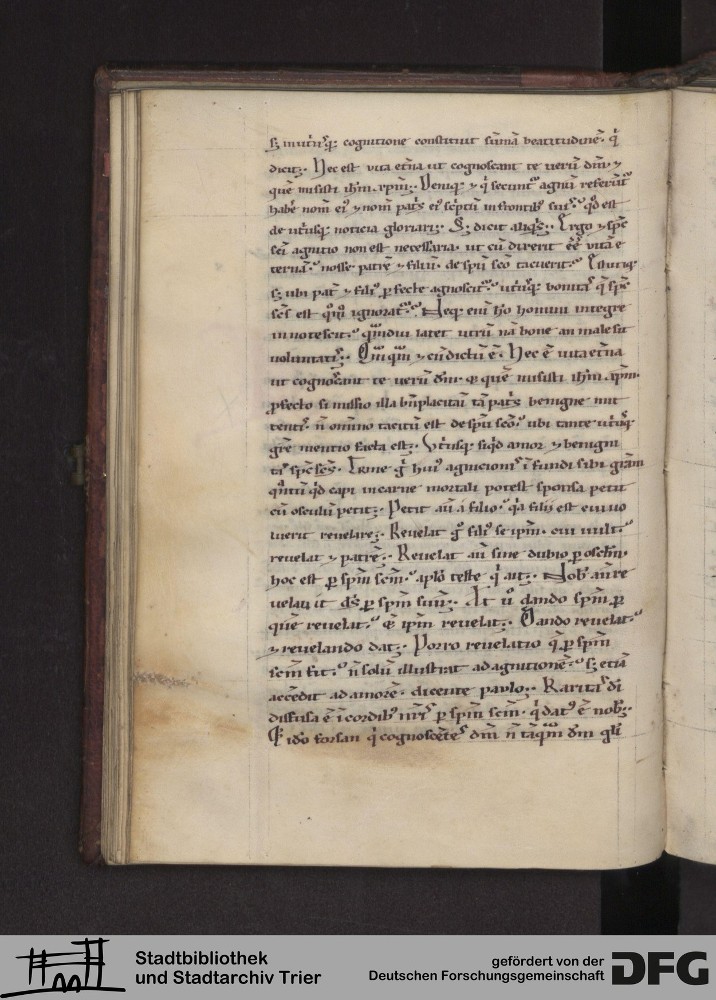 sȝ in utri᷒q; cognitione constituit sūmā beatitudinē. q̇
dicit;. Hec est vita etn̄a ut cognoscant te uerū dm̄. ⁊
quē misisti ihm̄ xpm̄;. Deniq; ⁊ q̇ secunt᷒ agnū referūt᷒
habē nom̄ ei᷒ ⁊ nom̄ pat᷒s ei᷒ sc̄ptū in frontib᷒ suis. qd̄ est
de utri᷒sq; noticia gloriari;. Sȝ dicit aliq᷒s;. Ergo ⁊ sp̄c
sc̄i agnitio non est necessaria. ut cū dixerit ēē uitā e
ternā. nosse patrē ⁊ filiū. de spū sc̄o tacuerit. Est utiq;
sȝ ubi pat̄ ⁊ fili᷒ ꝑfecte agnoscit᷒. utri᷒q; bonitas q̇ sp̄c
sc̄s est qm̊ ignorat᷒. Neq; eni ho homini integre
innotescit. qm̄diu latet utrū nā bone an male sit
uoluntatis;. Qm̄qm̄ ⁊ cū dictū ē. Hec ē uita etn̄a
ut cognoscant te uerū dm̄. & quē misisti ihm̄ xpm̄.
ꝓfecto si missio illa bn̄placitā tā pat᷒s benigne mit
tentis. n̄ omīno tacitū est de spū sc̄o. ubi tante utri᷒q;
gr̄e mentio facta est;. Utri᷒sq; siq̇d amor ⁊ benigni
tas sp̄c sc̄s. Trine g̊ hui᷒ agnicionis ī fundi sibi grām
q̄ntū q̇d capi in carne mortali potest sponsa petit
cū osculū petit;. Petit aū a filio. q̇a filij est cui uo
luerit reuelare;. Reuelat g̊ fili᷒ se ipm̄. cui uult.
reuelat ⁊ patrē;. Reuelat aū sine dubio ꝑ osclm̄.
hoc est ꝑ spm̄ scm̄. aplō teste q̇ ait;. Nob᷒ aū re
uelauit ds̄ ꝑ spm̄ suū;. At ů dando spm̄ ꝑ
quē reuelat. & ipm̄ reuelat;. Dando reuelat.
⁊ reuelando dat;. Porro reuelatio q̄ ꝑ spm̄
scm̄ fit. n̄ solū illustrat ad agnitionē. sȝ etiā
accēdit ad amorē. dicente paulo;. Karitas di
diffusa ē ī cordib᷒ nr̄is ꝑ spm̄ scm̄. q̇ dat᷒ ē nob᷒;.
Et ido forsan q̇ cognoscētes dm̄ n̄ tāqm̄ dm̄ gli
Stadtbibliothek
und Stadtarchiv Trier
gefördert von der
Deutschen Forschungsgemeinschaft DFG